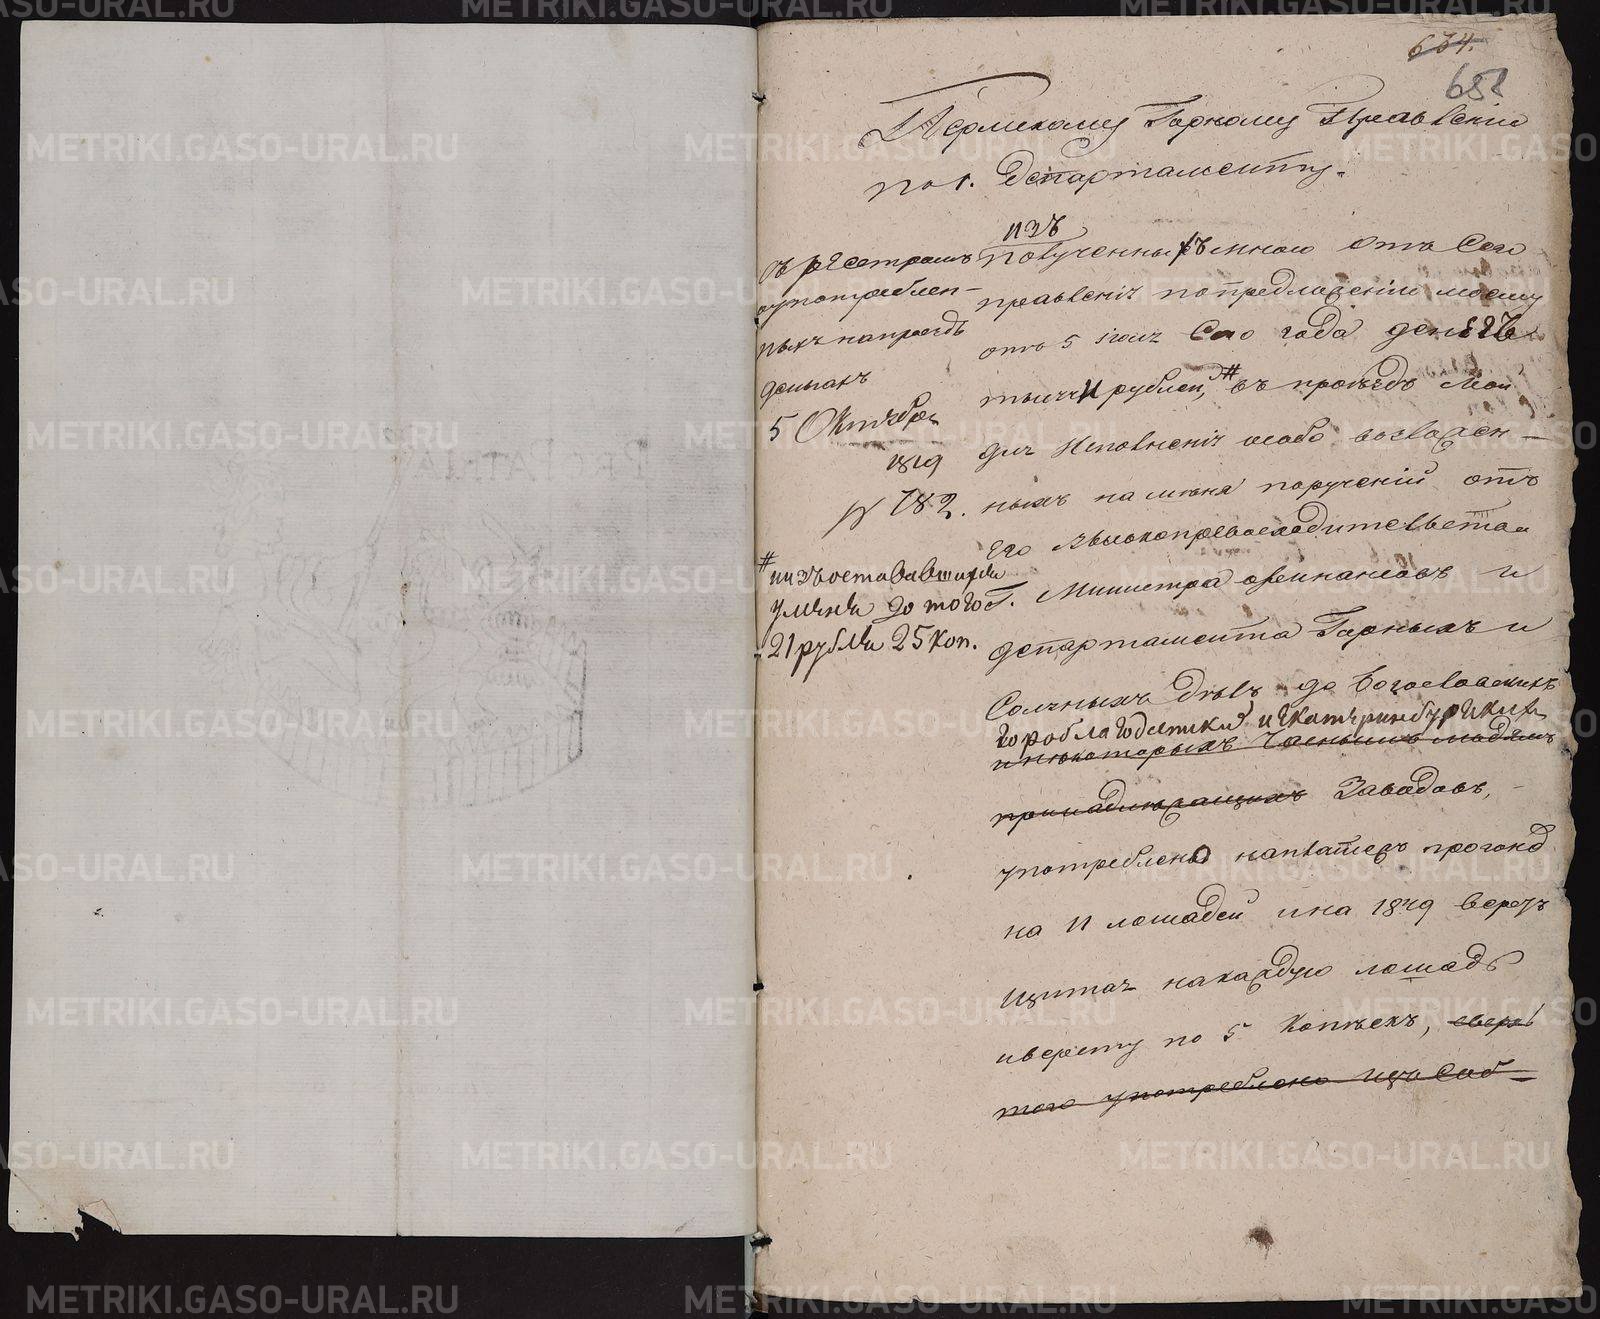 634.
658
Пермскому Горному Правленію
по 1. Департаменту.
изъ
полученныхъ мною отъ Сего
правленія по предложенію моему
отъ 5 іюля Сего года денегъ
тысячи рублей,# въ проѣздъ Мой
для Исполненія особо возложен-
ныхъ на меня порученій отъ
Его Высокопревосходительства
Г. Министра финансовъ и
департамента Горныхъ и
Соляныхъ Дѣлъ до Богословскихъ
Гороблагодатскихъ и Екатеринбургскихъ
и нѣкоторыхъ Частнымъ людямъ
принадлежащихъ Заводовъ,
употреблено на платежъ прогонъ
на 11 лошадей и на 1849 верстъ
щитая на каждую лошадь
и версту по 5 копѣекъ, сверхъ
того употреблено изъ Соб-
съ реестромъ
употреблен-
ныхъ на проѣздъ
деньгахъ
5 Октября
1819
№ 782.
# и изъ остававшихся
у меня до того
21 рубля 25 коп.
METRIKI.GASO-URAL.RU